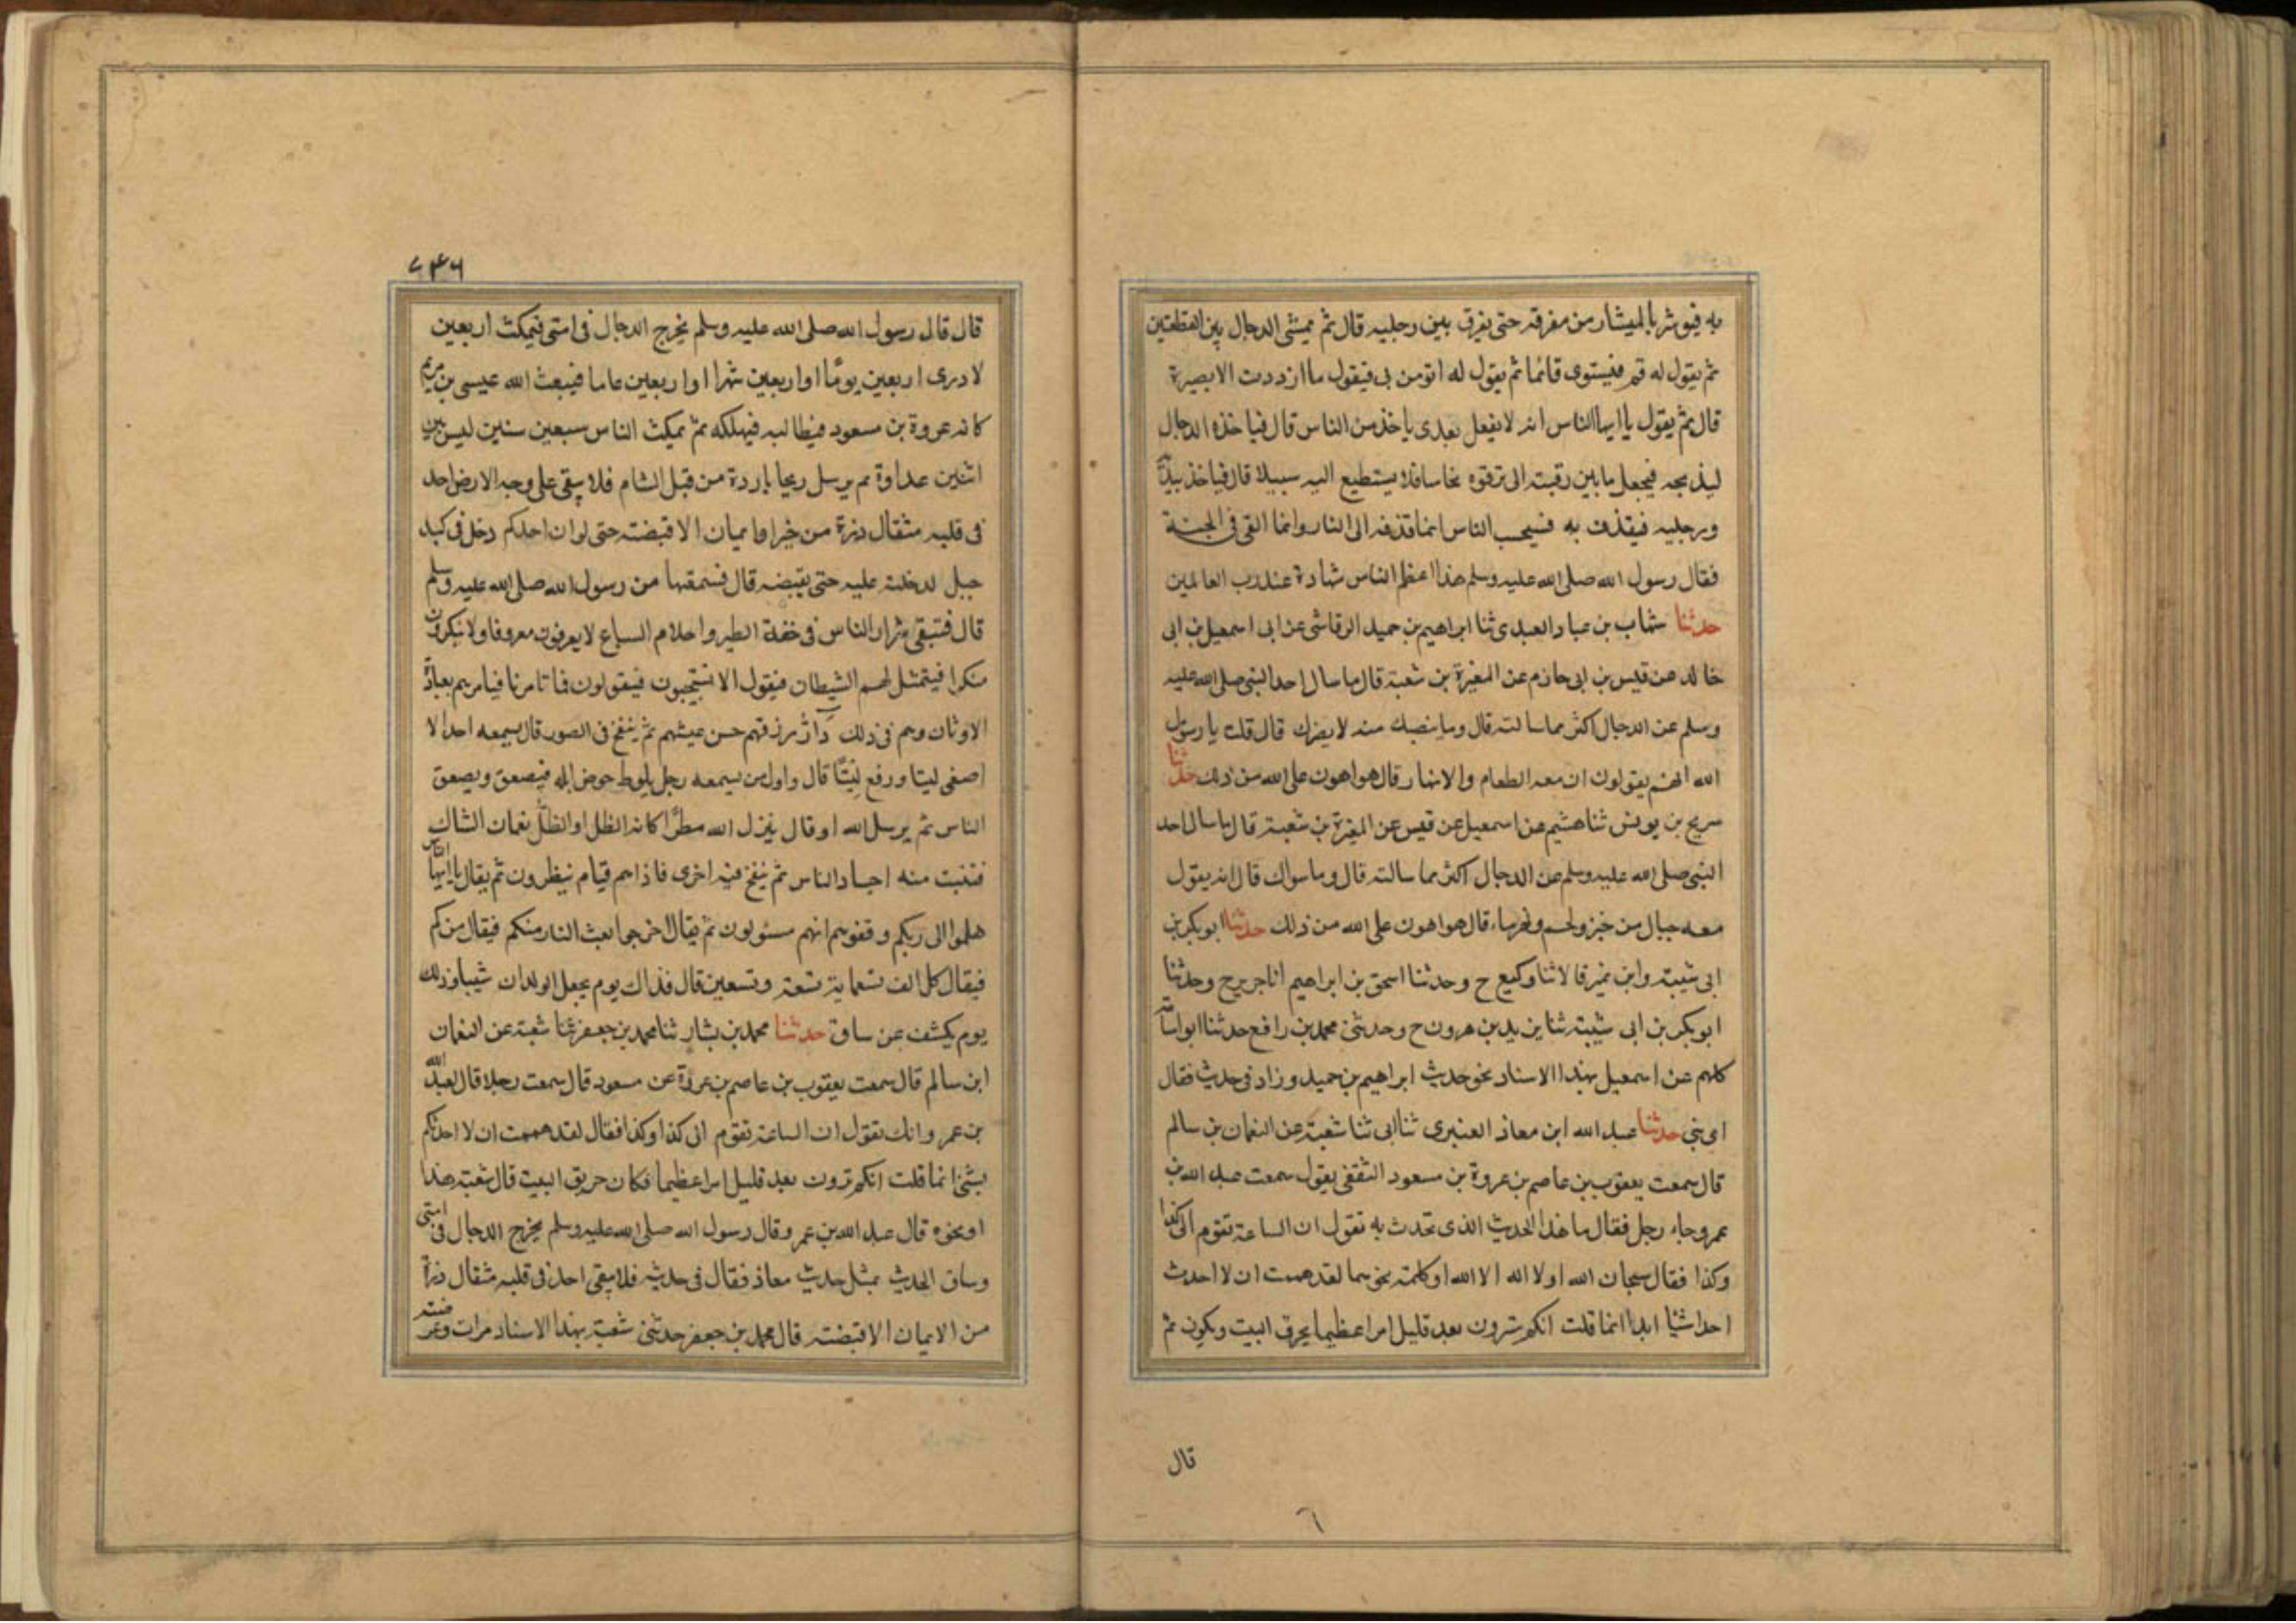 به فيوشر بالميشار من مفرقه حتى يفرق بين رجليه قال ثم يمشى الدجال بين القطعتين
ثم يقول له قم فيستوى قائما ثم يقول له اتومن بى فيقول ما ازددت الا بصيرة
قال ثم يقول يا ايها الناس انه لا يفعل بعدى باخذ من الناس قال فياخذه الدجال
ليذبحه فيجعل ما بين رقبته الى ترقوته نحاسا فلا يستطيع اليه سبيلا قال فياخذ بيديه
ورجليه فيقذف به فيحسب الناس انما قذفه الى النار وانما القى فى الجنة
فقال رسول الله صلى الله عليه وسلم هذا اعظم الناس شهادة عند رب العالمين
حدثنا شهاب بن عباد العبدى ثنا ابراهيم بن حميد الرقاشى عن ابى اسمعيل بن ابى
خالد عن قيس بن ابى حازم عن المغيرة بن شعبة قال ما سال احد النبى صلى الله عليه
وسلم عن الدجال اكثر مما سالته قال وما ينصبك منه لا يضرك قال قلت يا رسول
الله انهم يقولون ان معه الطعام والانهار قال هو اهون على الله من ذلك حدثنا
سريج بن يونس ثنا هشيم عن اسمعيل عن قيس عن المغيرة بن شعبة قال ما سال احد
النبى صلى الله عليه وسلم عن الدجال اكثر مما سالته قال وما سوالك قال انه يقول
معه جبال من خبز ولحم ونهر ماء قال هو اهون على الله من ذلك حدثنا ابو بكر بن
ابى شيبة وابن نمير قالا ثنا وكيع ح وحدثنا اسحق بن ابراهيم انا جرير ح وحدثنا
ابو بكر بن ابى شيبة ثنا يزيد بن هرون ح وحدثنى محمد بن رافع حدثنا ابو اسامة
كلهم عن اسمعيل بهذا الاسناد نحو حديث ابراهيم بن حميد وزاد فى حديث فقال
اى بنى حدثنا عبد الله ابن معاذ العنبرى ثنا ابى ثنا شعبة عن النعمان بن سالم
قال سمعت يعقوب بن عاصم بن عروة بن مسعود الثقفى يقول سمعت عبد الله بن
عمر وجاءه رجل فقال ما هذا الحديث الذى تحدث به تقول ان الساعة تقوم الى كذا
وكذا فقال سبحان الله او لا اله الا الله او كلمة نحوهما لقد هممت ان لا احدث
احدا شيا ابدا انما قلت انكم سترون بعد قليل امرا عظيما يحرق البيت ويكون ثم
قال
٦
٧٤٦
قال قال رسول الله صلى الله عليه وسلم يخرج الدجال فى امتى فيمكث اربعين
لا ادرى اربعين يومًا او اربعين شهرا او اربعين عاما فيبعث الله عيسى بن مريم
كانه عروة بن مسعود فيطالبه فيهلكه ثم يمكث الناس سبعين سنين ليس بين
اثنين عداوة ثم يرسل ريحا باردة من قبل الشام فلا يبقى على وجه الارض احد
فى قلبه مثقال ذرة من خير او ايمان الا قبضته حتى لو ان احدكم دخل فى كبد
جبل لدخلته عليه حتى يقبضه قال فسمعتها من رسول الله صلى الله عليه وسلم
قال فتبقى شرار الناس فى خفة الطير واحلام السباع لا يعرفون معروفا ولا ينكرون
منكرا فيتمثل لهم الشيطان فيقول الا تستجيبون فيقولون فما تامرنا فيامرهم بعبادة
الاوثان وهم فى ذلك دارٌّ رزقهم حسن عيشهم ثم ينفخ فى الصور قال يسمعه احد الا
اصغى ليتا ورفع لِيتًا قال واول من يسمعه رجل يلوط حوض ابله فيصعق ويصعق
الناس ثم يرسل الله او قال ينزل الله مطرًا كانه الظل او الطلّ نعمان الشاك
فتنبت منه اجساد الناس ثم ينفخ فيه اخرى فاذا هم قيام ينظرون ثم يقال يا ايها الناس
هلموا الى ربكم وقفوهم انهم مسئولون ثم يقال اخرجوا بعث النار منكم فيقال من كم
فيقال كل الف تسعماية تسعة وتسعين قال فذاك يوم يجعل الولدان شيبا وذلك
يوم يكشف عن ساق حدثنا محمد بن بشار ثنا محمد بن جعفر ثنا شعبة عن النعمان
ابن سالم قال سمعت يعقوب بن عاصم بن عروة عن مسعود قال سمعت رجلا قال لعبد الله
بن عمر وانك تقول ان الساعة تقوم الى كذا وكذا فقال لقد هممت ان لا احدثكم
بشئ انما قلت انكم ترون بعد قليل امرا عظيما فكان حريق البيت قال شعبة هذا
او نحوه قال عبد الله بن عمر وقال رسول الله صلى الله عليه وسلم يخرج الدجال فى امتى
وساق الحديث بمثل حديث معاذ فقال فى حديثه فلا يبقى احد فى قلبه مثقال ذرة
من الايمان الا قبضته قال محمد بن جعفر حدثنى شعبة بهذا الاسناد مرات وعرضته